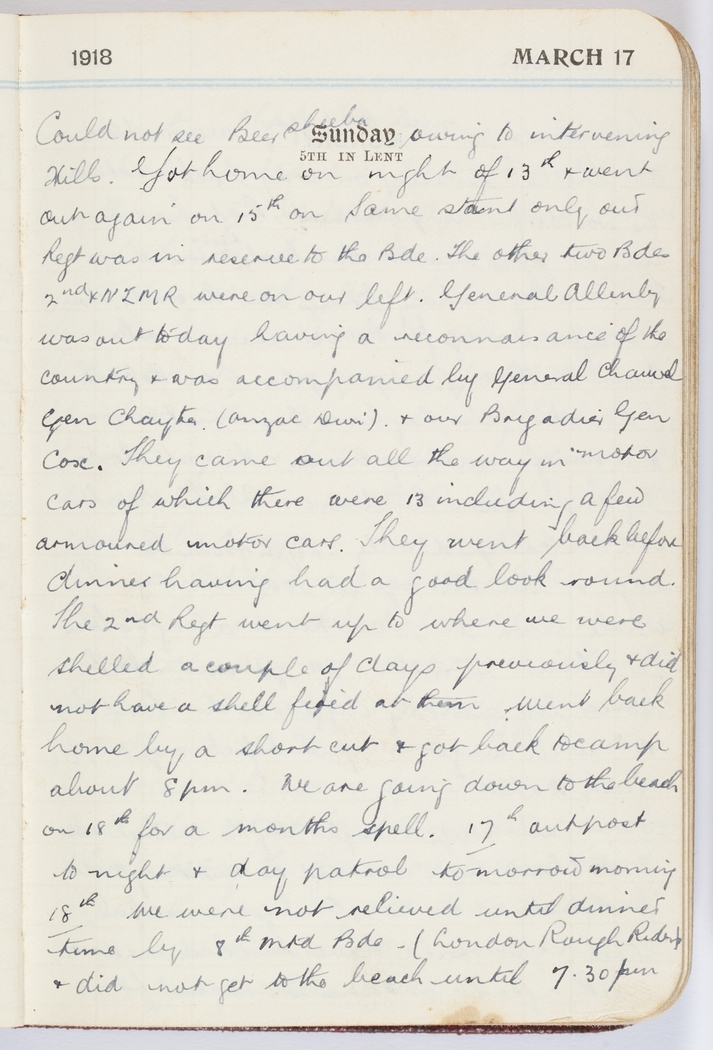 1918 MARCH 17
Sunday
5TH IN LENT
Could not see Beersheeba owing to intervening
Hills. Got home on night of 13th & went
out again on 15th on same stunt only our
Regt was in reserve to the Bde. The other two Bdes
2nd & NZMR were on our left. General Allenby
was out to day having a reconnaisance of the
country & was accompanied by General Chauvel
Gen Chaytor. (Anzac Divi). & our Brigadier Gen
Cox. They came out all the way in motor
cars of which there were 13 including a few
armoured motor cars. They went back before
dinner having had a good look round.
The 2nd Regt went up to where we were
shelled a couple of days previously & did
not have a shell fired at them. Went back
home by a short cut & got back to camp
about 8pm. We are going down to the beach
on 18th for a months spell. 17th outpost
to night & day patrol tomorrow morning
18th We were not relieved until dinner
time by 8th Mtd Bde. (London Rough Riders)
& did not get to the beach until 7.30 pm